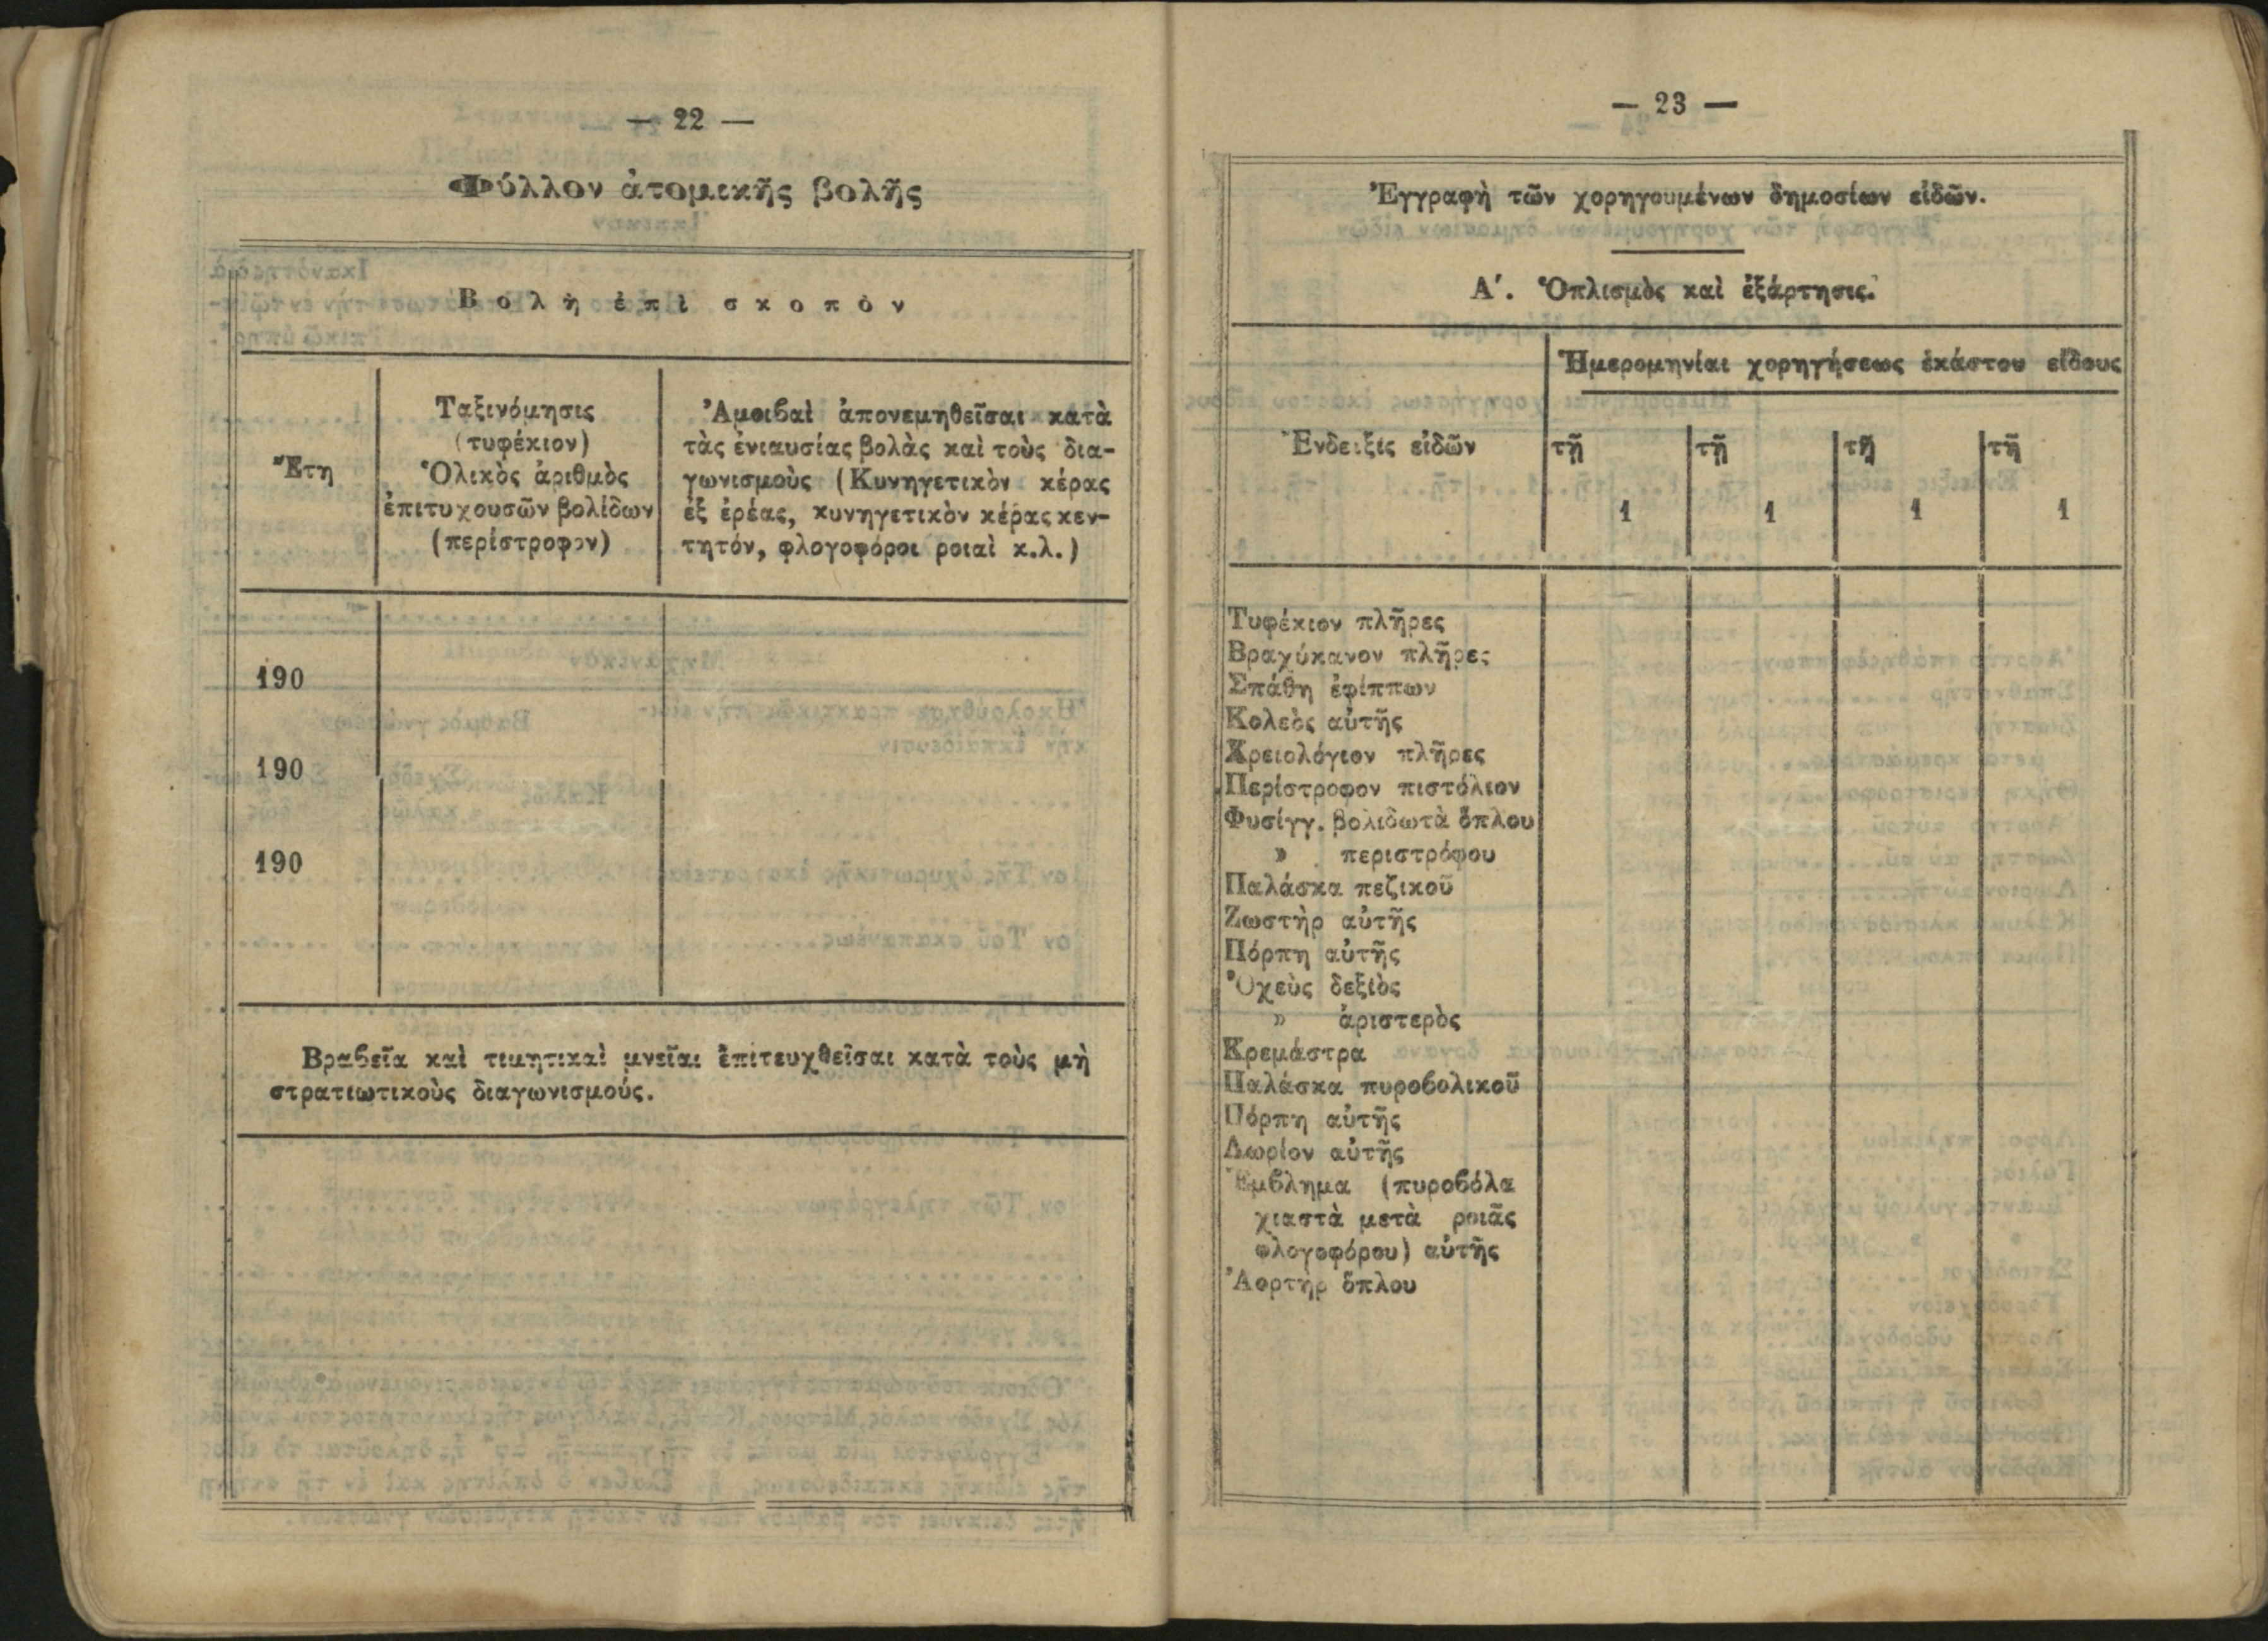 — 22 —
Φύλλον ἀτομικῆς βολῆς
Βολὴ ἐπὶ σκοπὸν
Ἔτη
Ταξινόμησις
(τυφέκιον)
Ὁλικὸς ἀριθμὸς
ἐπιτυχουσῶν βολίδων
(περίστροφον)
Ἀμοιβαὶ ἀπονεμηθεῖσαι κατὰ
τὰς ἐνιαυσίας βολὰς καὶ τοὺς δια-
γωνισμοὺς (Κυνηγετικὸν κέρας
ἐξ ἐρέας, κυνηγετικὸν κέρας κεν-
τητόν, φλογοφόροι ροιαὶ κ.λ.)
190
190
190
Βραβεῖα καὶ τιμητικαὶ μνεῖαι ἐπιτευχθεῖσαι κατὰ τοὺς μὴ
στρατιωτικοὺς διαγωνισμούς.
— 23 —
Ἐγγραφὴ τῶν χορηγουμένων δημοσίων εἰδῶν.
Α΄. Ὁπλισμὸς καὶ ἐξάρτησις.
Ἔνδειξις εἰδῶν
Ἡμερομηνίαι χορηγήσεως ἑκάστου εἴδους
τῇ τῇ τῇ τῇ
1 1 1 1
Τυφέκιον πλῆρες
Βραχύκανον πλῆρες
Σπάθη ἐφίππων
Κολεὸς αὐτῆς
Χρειολόγιον πλῆρες
Περίστροφον πιστόλιον
Φυσίγγ. βολιδωτὰ ὅπλου
» περιστρόφου
Παλάσκα πεζικοῦ
Ζωστὴρ αὐτῆς
Πόρπη αὐτῆς
Ὀχεὺς δεξιὸς
» ἀριστερὸς
Κρεμάστρα
Παλάσκα πυροβολικοῦ
Πόρπη αὐτῆς
Λωρίον αὐτῆς
Ἔμβλημα (πυροβόλα
χιαστὰ μετὰ ροιᾶς
φλογοφόρου) αὐτῆς
Ἀορτὴρ ὅπλου